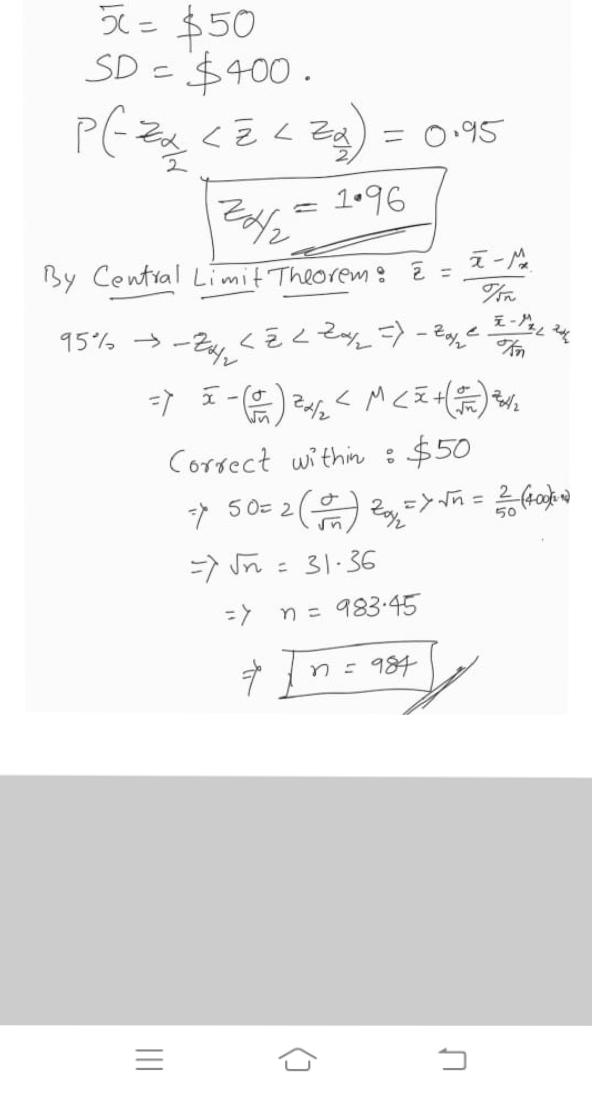 x̄ = $50
SD = $400.
P(-z_α/2 < z̄ < z_α/2) = 0.95
z_α/2 = 1.96
By Central Limit Theorem: z̄ = (x̄ - μ_x)/(σ/√n)
95% → -z_α/2 < z̄ < z_α/2 => -z_α/2 < (x̄ - μ_x)/(σ/√n) < z_α/2
=> x̄ - (σ/√n) z_α/2 < μ < x̄ + (σ/√n) z_α/2
Correct within : $50
=> 50 = 2(σ/√n) z_α/2 => √n = 2/50
=> √n = 31.36
=> n = 983.45
=> n = 984